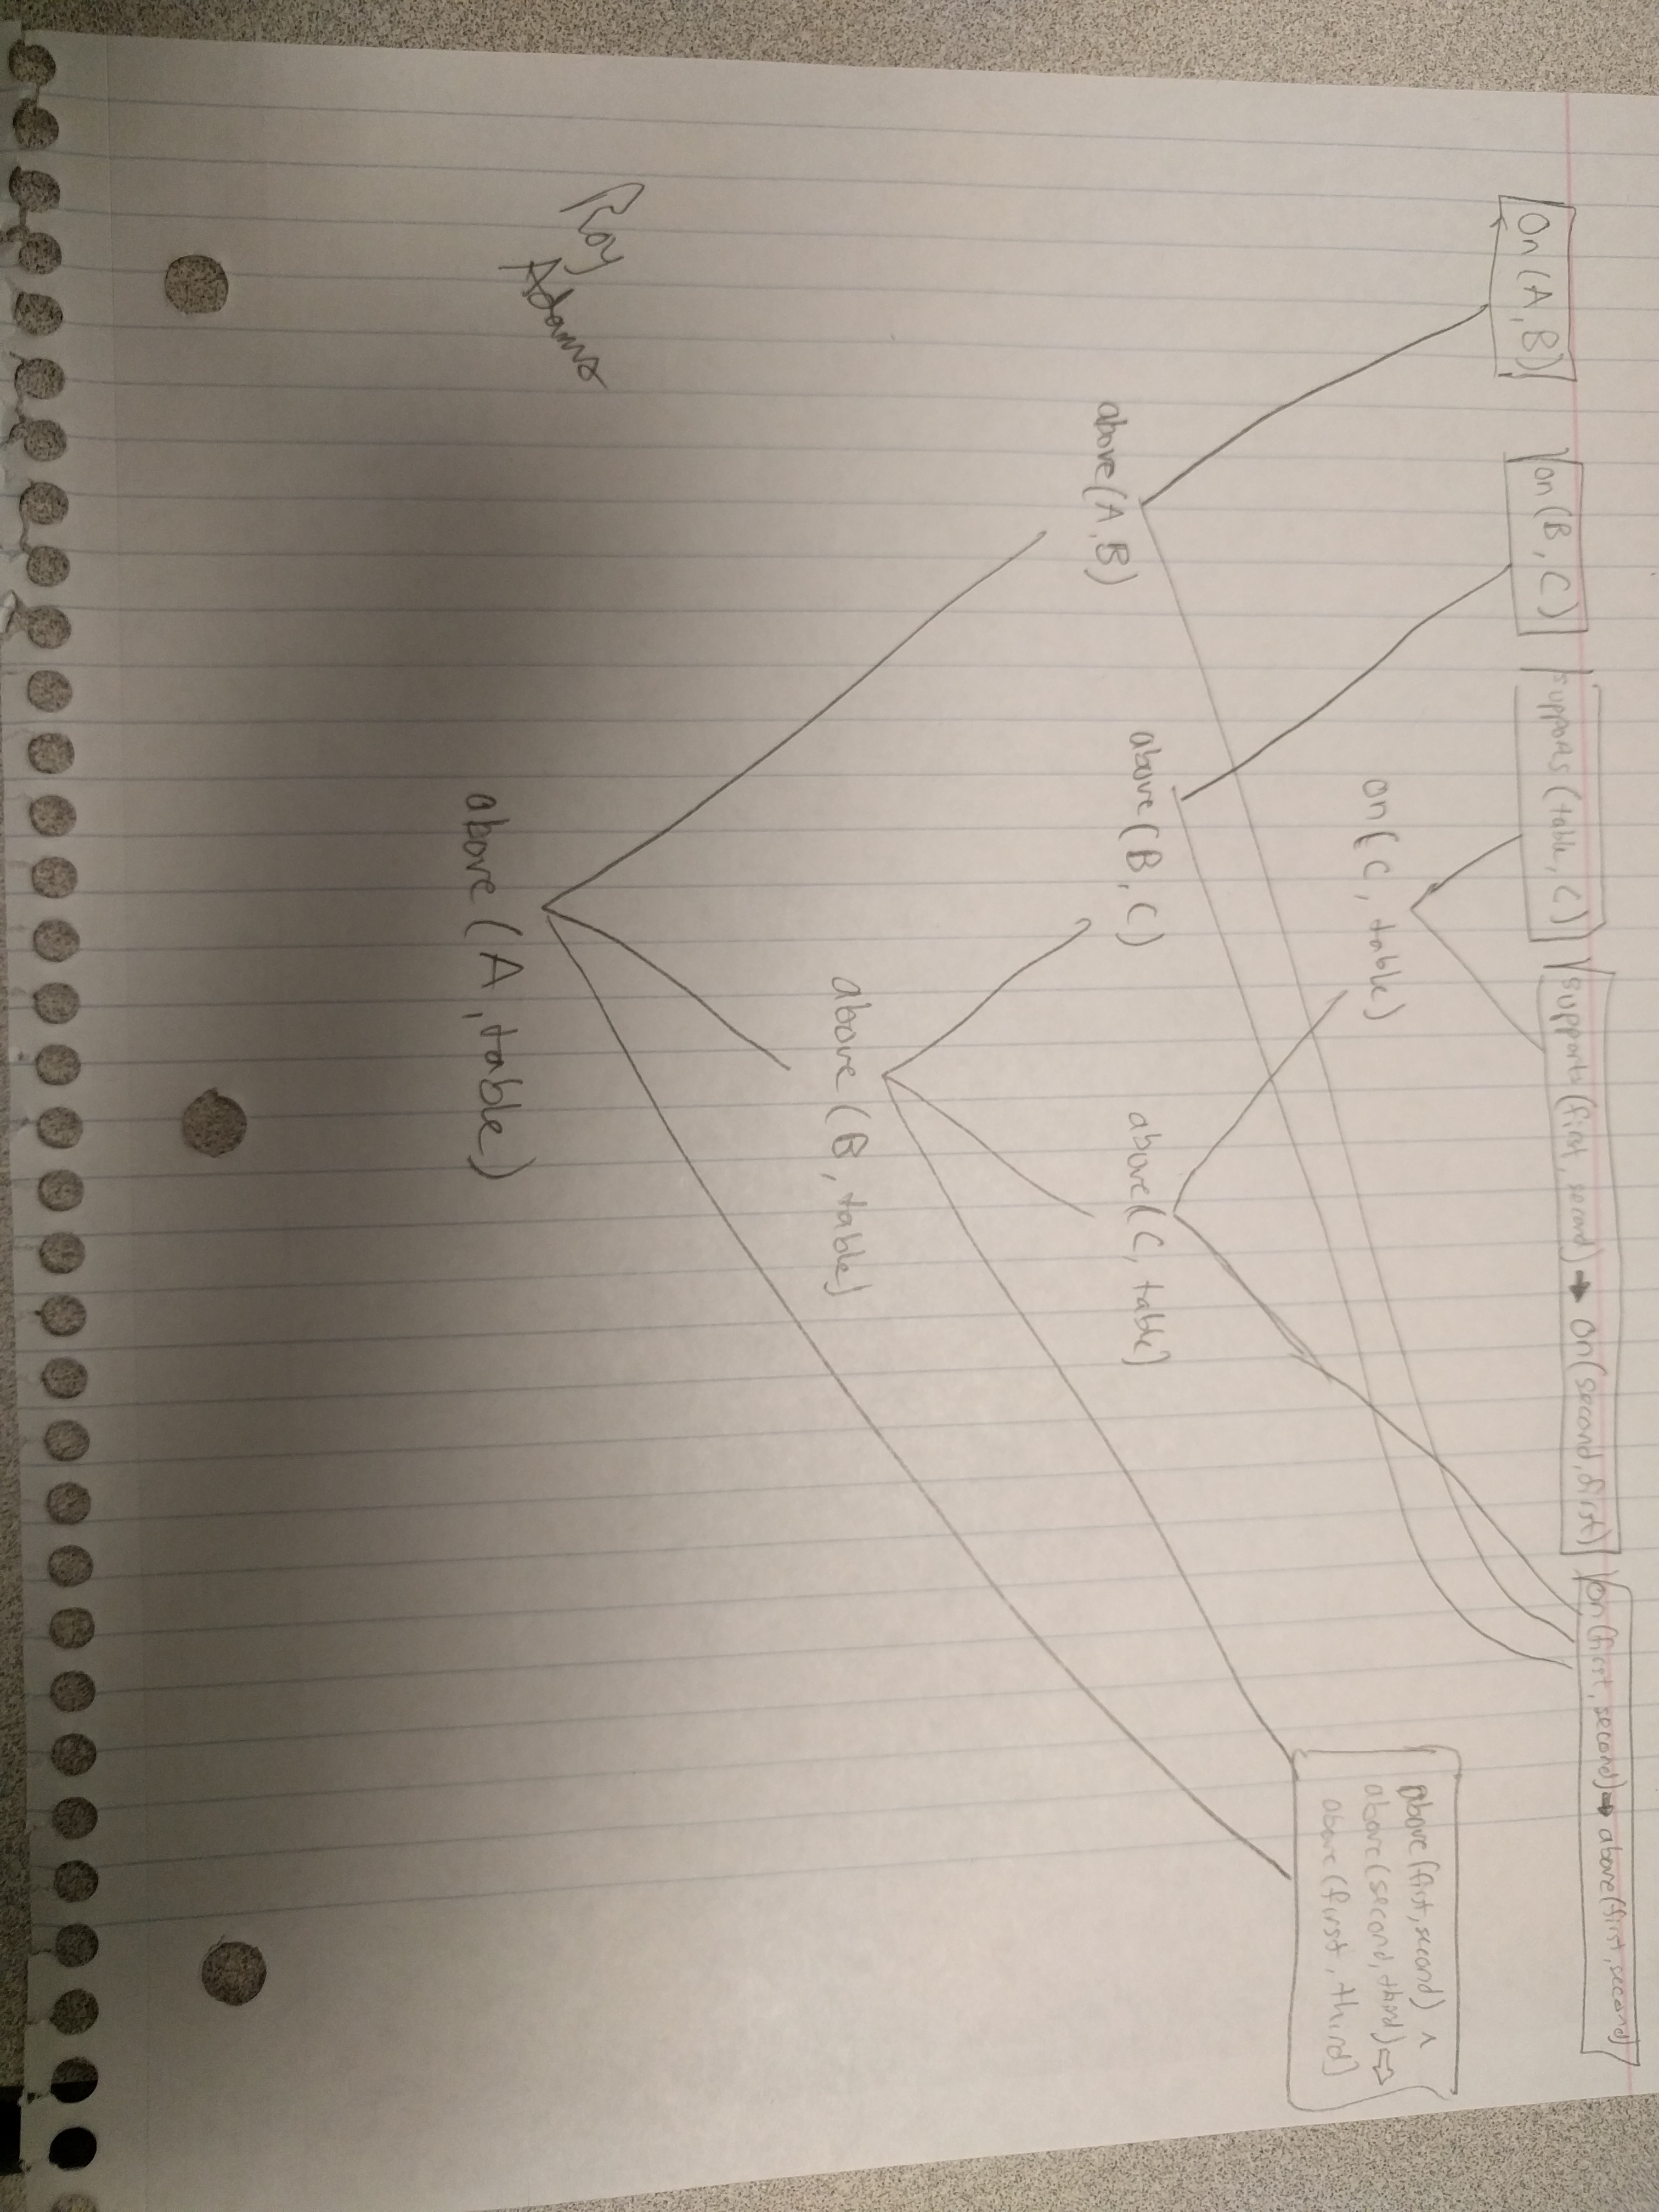 On(A,B)
on(B,C)
supports(table,C)
supports(first,second) → on(second,first)
on(first,second) → above(first,second)
above(first,second) ^
above(second,third) ⇒
above(first,third)
on(C,table)
above(A,B)
above(B,C)
above(C,table)
above(B,table)
above(A,table)
Roy
Adams